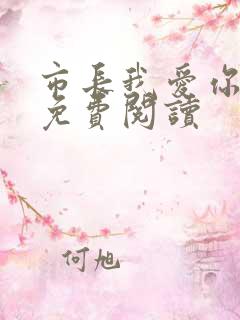 市长我爱你
免費閱讀
何旭